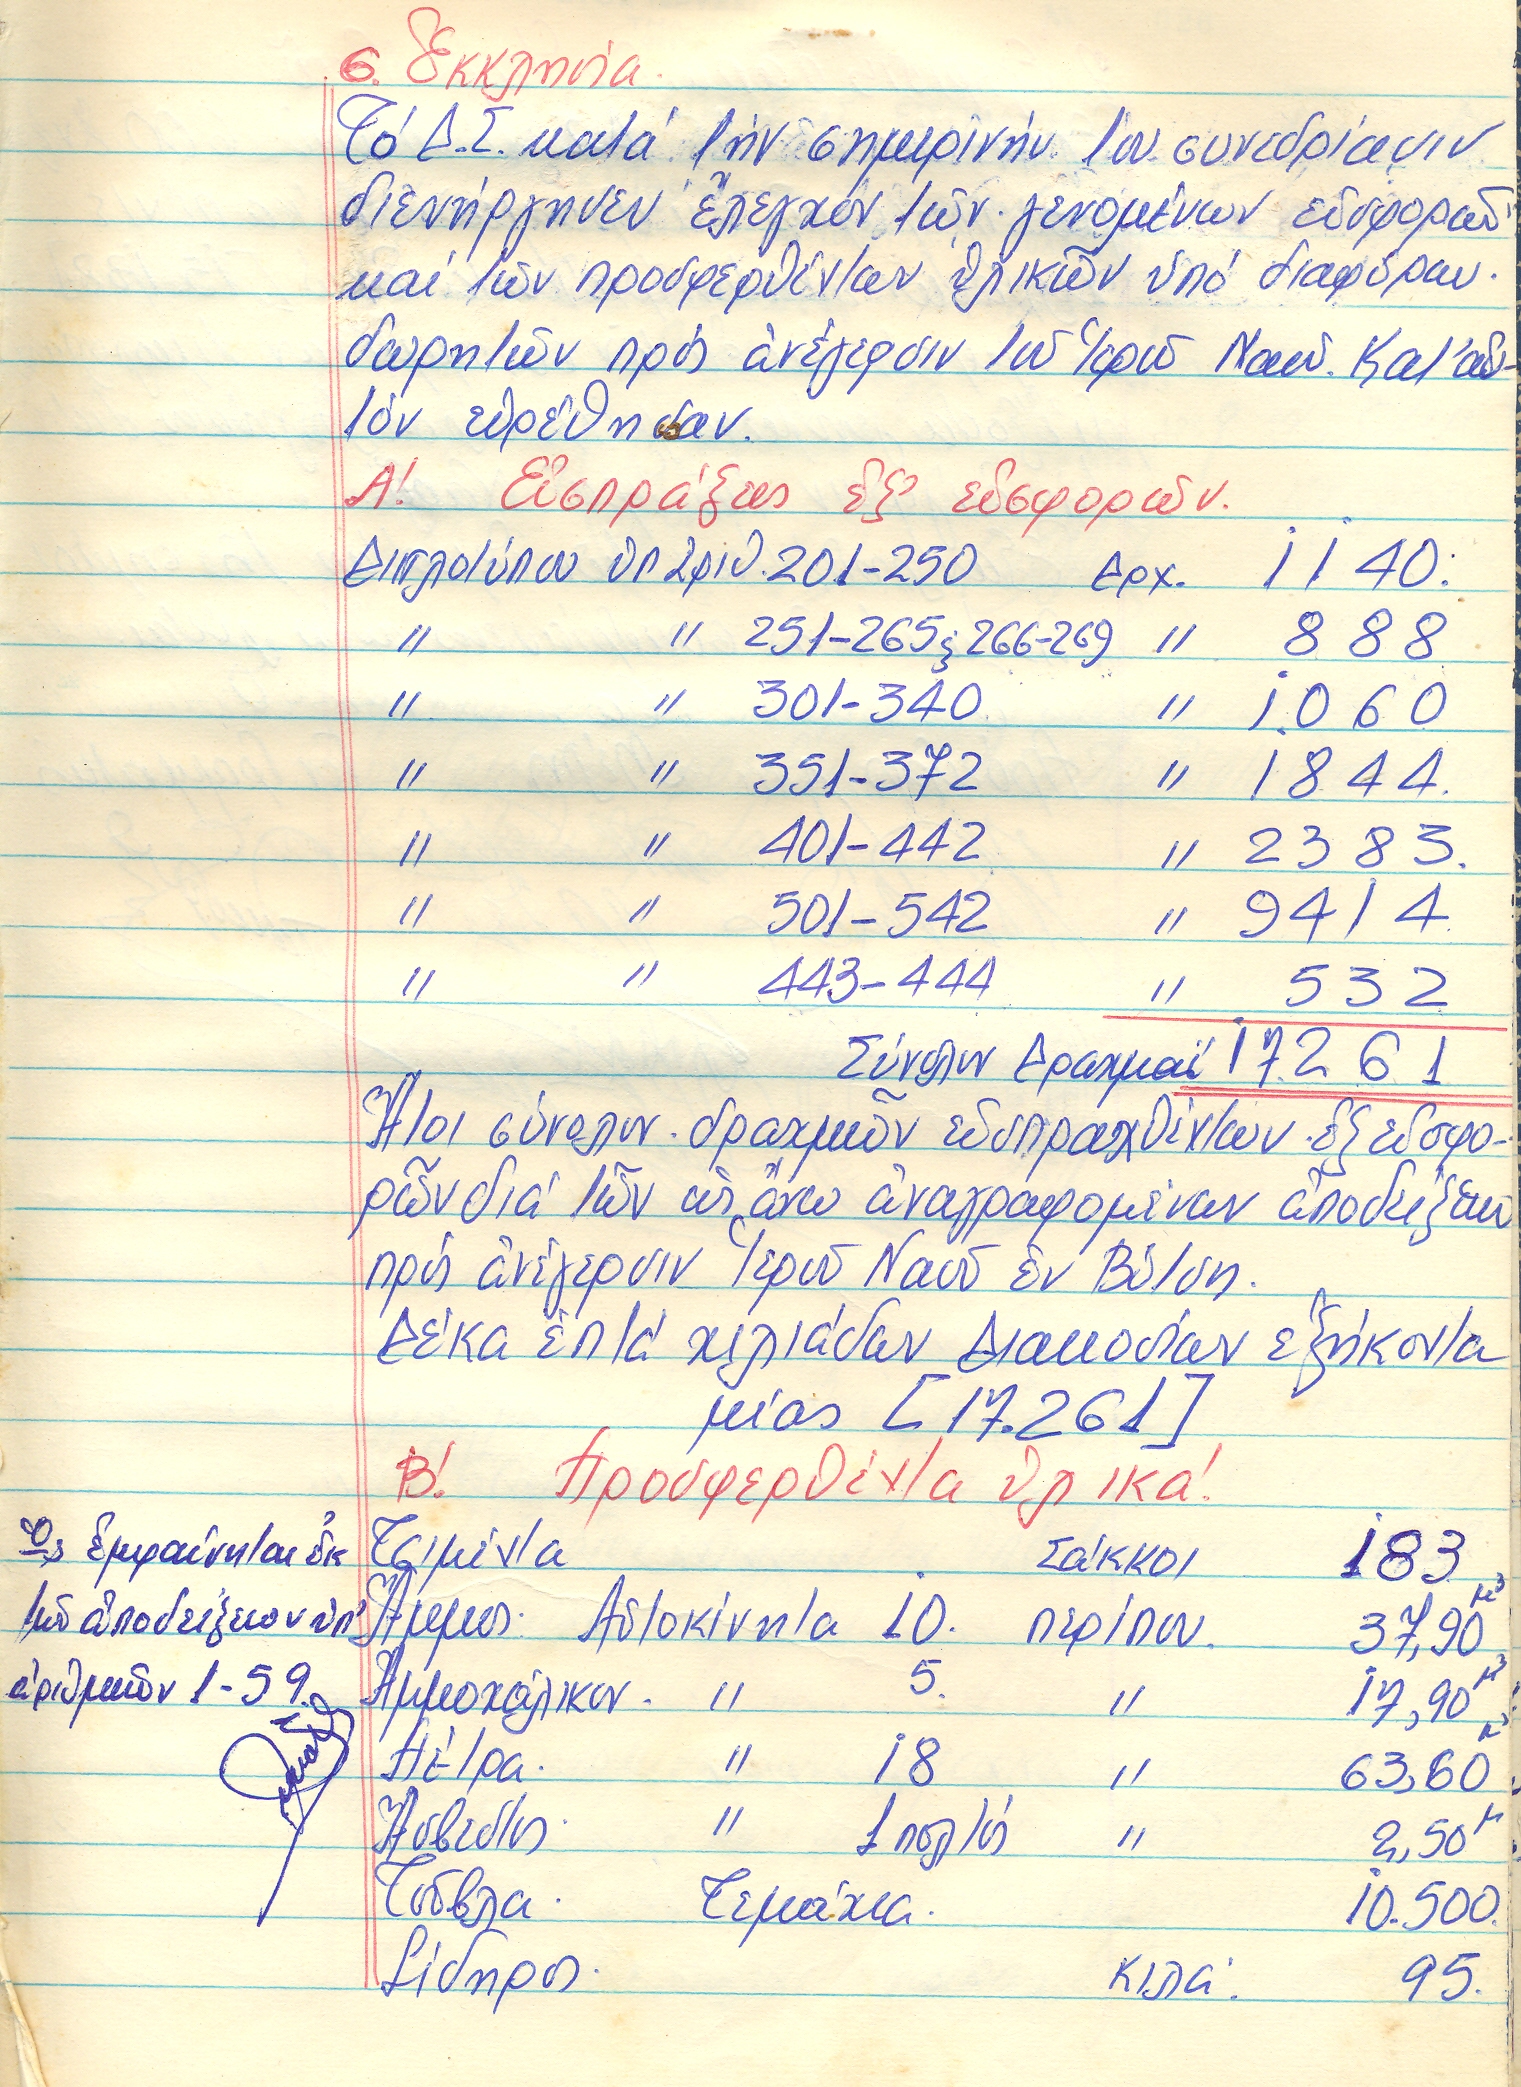 6. Ἐκκλησία.
Τό Δ.Σ. κατά τήν σημερινήν του συνεδρίασιν
διενήργησεν ἔλεγχον τῶν γενομένων εἰσφορῶν
καί τῶν προσφερθέντων ὑλικῶν ὑπό διαφόρων
δωρητῶν πρός ἀνέγερσιν τοῦ Ἱεροῦ Ναοῦ. Κατ' αὐ-
τόν εὑρέθησαν.
Α! Εἰσπράξεις ἐξ εἰσφορῶν.
Διπλοτύπου ὑπ ἀριθ. 201-250 Δρχ. 1140.
" " 251-265 ξ 266-269 " 888
" " 301-340 " 1.060
" " 351-372 " 1844.
" " 401-442 " 2383.
" " 501-542 " 9414
" " 443-444 " 532
Σύνολον Δραχμαί 17.261
Ἤτοι σύνολον δραχμῶν εἰσπραχθέντων ἐξ εἰσφο-
ρῶν διά τῶν ὡς ἄνω ἀναγραφομένων ἀποδείξεων
πρός ἀνέγερσιν Ἱεροῦ Ναοῦ ἐν Βύτση.
Δέκα ἑπτά χιλιάδων Διακοσίων ἑξήκοντα
μίας [17.261]
Β! Προσφερθέντα ὑλικά!
Τσιμέντα Σάκκοι 183
Ἄμμος. Αὐτοκίνητα 10. περίπου. 37,90 μ³
Ἀμμοχάλικον. " 5. " 17,90 μ³
Πέτρα. " 18 " 63,60 μ³
Ἀσβέστης. " 1 πολτός " 2,50 μ
Τοῦβλα. Τεμάχια. 10.500.
Σίδηρος. κιλά. 95.
Ὡς ἐμφαίνηται ἐκ
τῶν ἀποδείξεων ὑπ'
ἀριθμῶν 1-59.